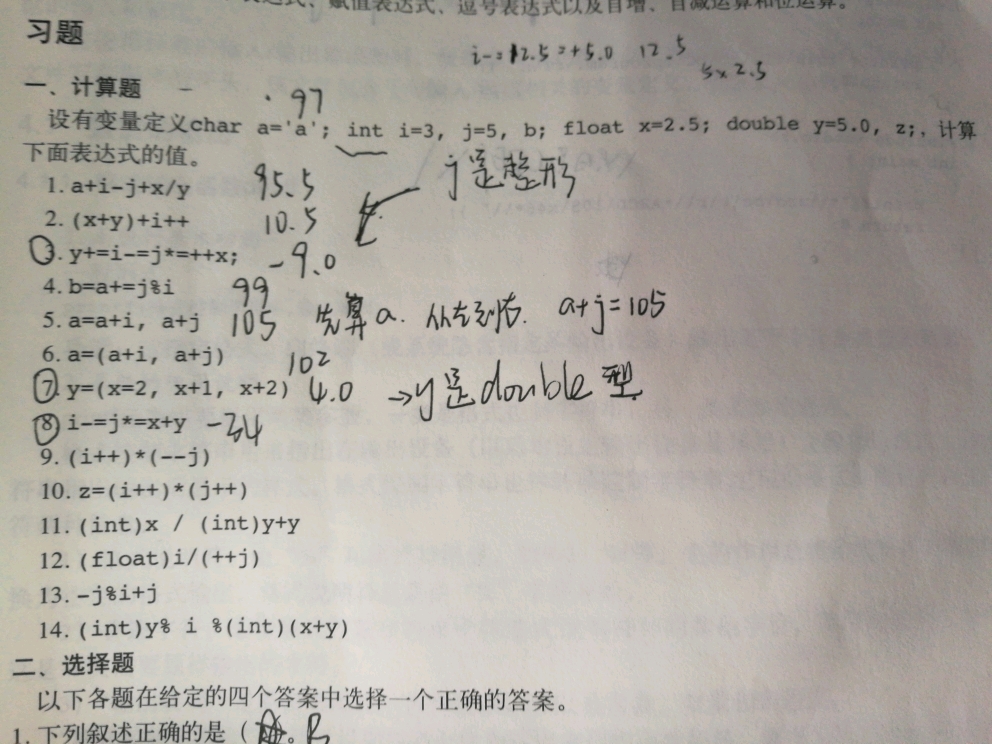 赋值表达式、逗号表达式以及自增、自减运算和位运算。
习题
i-=12.5=+5.0 12.5
5x2.5
一、计算题
97
设有变量定义char a='a'; int i=3, j=5, b; float x=2.5; double y=5.0, z;, 计算
下面表达式的值。
1. a+i-j+x/y 95.5 j是整形
2. (x+y)+i++ 10.5
3. y+=i-=j*=++x; -9.0
4. b=a+=j%i 99
5. a=a+i, a+j 105 先算a. 从左到右. a+j=105
6. a=(a+i, a+j) 102
7. y=(x=2, x+1, x+2) 4.0 →y是double型
8. i-=j*=x+y -34
9. (i++)*(--j)
10. z=(i++)*(j++)
11. (int)x / (int)y+y
12. (float)i/(++j)
13. -j%i+j
14. (int)y% i %(int)(x+y)
二、选择题
以下各题在给定的四个答案中选择一个正确的答案。
1. 下列叙述正确的是 ( B